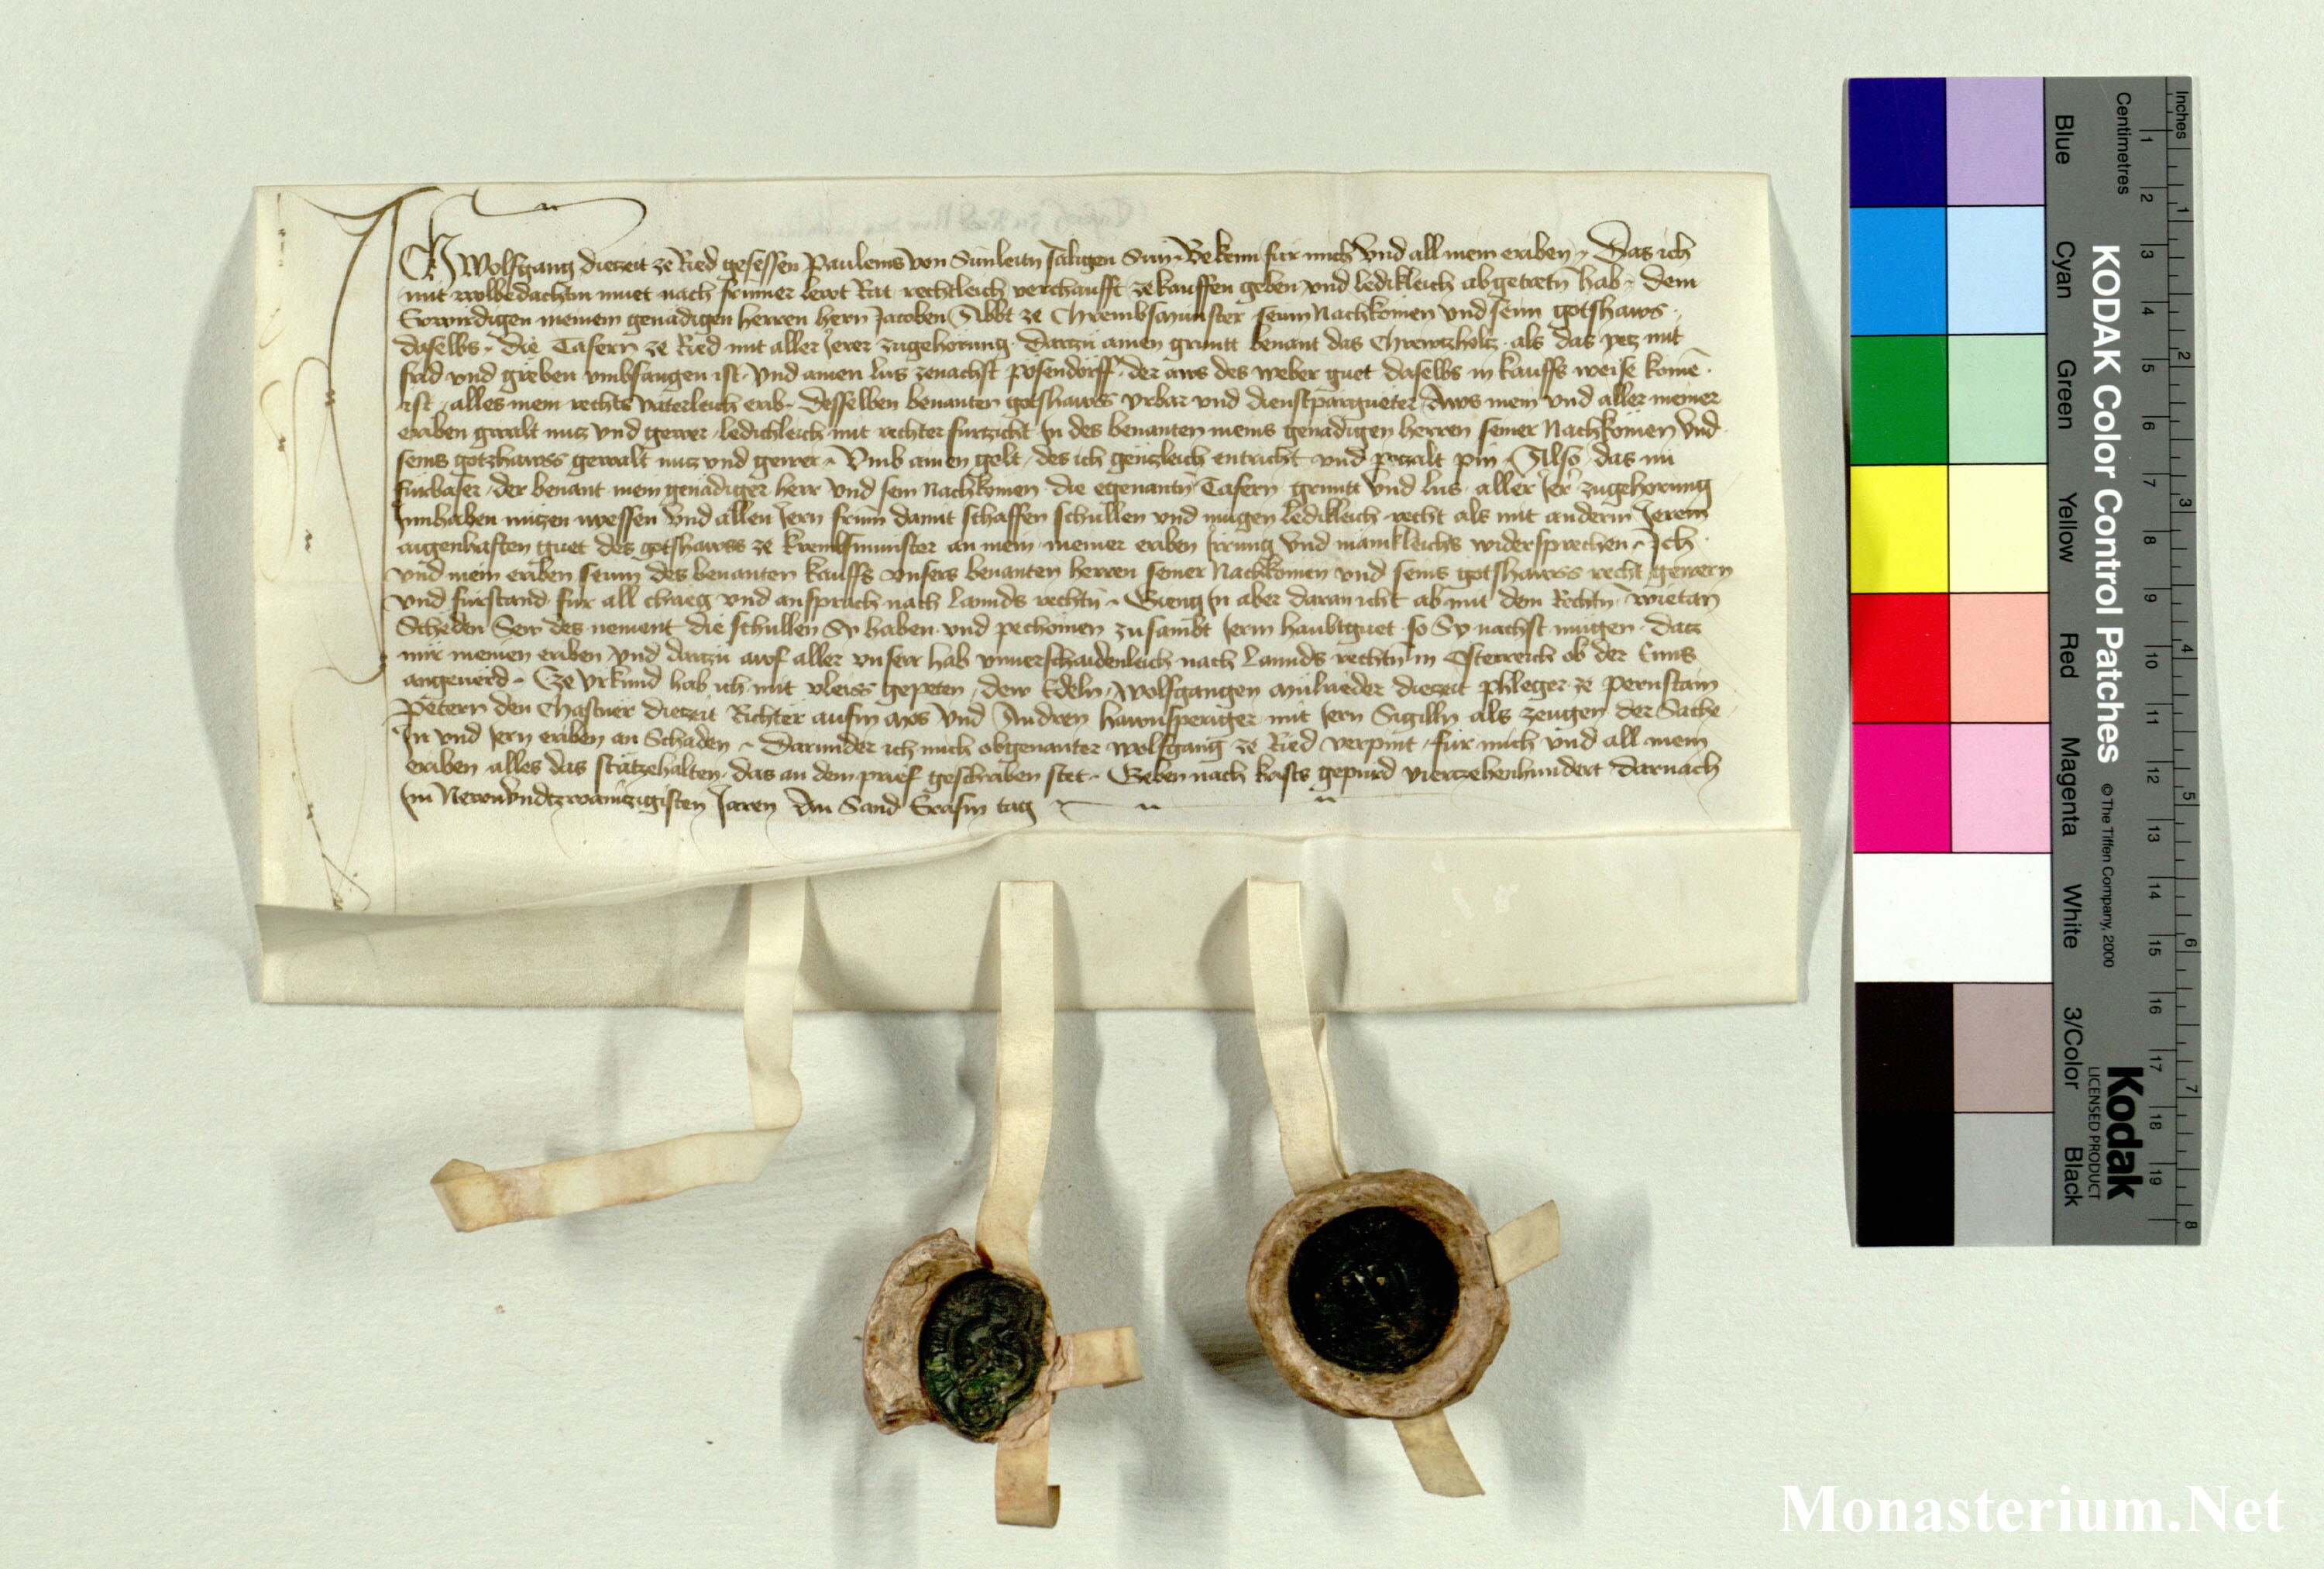 Ich Wolfgang diezeit ze Ried gesessen Paulems von Sunleitn säligen Sun Bekenn für mich vnd all mein eriben Das ich
mit wolbedachtm muet nach frümer lewt Rat rechtleich verchaufft ze kauffen geben vnd ledikleich abgetretn hab Dem
Erwirdigen meinem genädigen herren hern Jacoben Abbt ze Chrembsmünster seinn Nachkömen vnd seinn gotshaws
daselbs Die Tafern ze Ried mit aller Jerer zugehörung Dartzu ainen gruntt benant das Chrewtzholtz als das yetz mit
frid vnd graben vmbfangen ist Vnd ainen lus zenachst pösendorff der aws des weber guet daselbs in kauffs weise komen
ist alles mein rechts väterleich erib Desselben benanten gotshawss vrbar vnd dienstpargueter Aws mein vnd aller meiner
eriben gwalt nutz vnd gewer ledichleich mit rechter furtzicht In des benanten meins genädigen herren seiner Nachkömen vnd
seins gotzhawss gewalt nutz vnd gewer Vmb ainen gelt des ich gentzleich entricht vnd petzalt pin Also das nu
fürbaser der benant mein genädiger herr vnd sein Nachkomen die egenantn Tafern gruntt vnd lus aller Jer zugehorung
Innhaben nutzen niessen vnd allen Jern frum damit schaffen schullen vnd mugen ledikleich recht als mit anderm Jerem
aigenhaften guet des gotshawss ze krembsmünster an mein meiner eriben Irrung vnd mänikleichs widersprechen Ich
vnd mein eriben seinn des benanten kauffs vnsers benanten herren seiner Nachkomen vnd seins gotshawss recht gewern
vnd fürstand für all chrieg vnd ansprach nach Lannds rechtn Gieng In aber daran icht ab mit dem Rechtn wietan
Scheden Sew des nement die schullen Sy haben vnd pechömen zusambt Jerm haubtguet so Sy nachst mügen datz
mir meinen eriben vnd dartzu awf aller vnserr hab vnuerschaidenleich nach Lannds rechtn in Österreich ob der Enns
angeuerd Tze vrkund hab ich mit vleiss gepeten den Edeln Wolfgangen Mülrieder diezeit phleger ze pernstain
Petern den Chastner diezeit Richter aufm Mos Vnd Andren hawnsperiger mit Jern Sigilln als zeugen der Sache
In vnd Jern eriben an Schaden Darunder ich mich obgenanter wolfgang ze Ried verpint für mich vnd all mein
eriben alles das stätzehalten das an dem prief geschriben stet Geben nach krists gepurd viertzehenhundert darnach
Im Newnvndtzwaintzigisten Jaren An Sand Erasm tag
KODAK Color Control Patches
© The Tiffen Company, 2000
Kodak
LICENSED PRODUCT
Inches
Centimetres
Blue
Cyan
Green
Yellow
Red
Magenta
White
3/Color
Black
1 2 3 4 5 6 7 8 9 10 11 12 13 14 15 16 17 18 19
1 2 3 4 5 6 7 8
Monasterium.Net